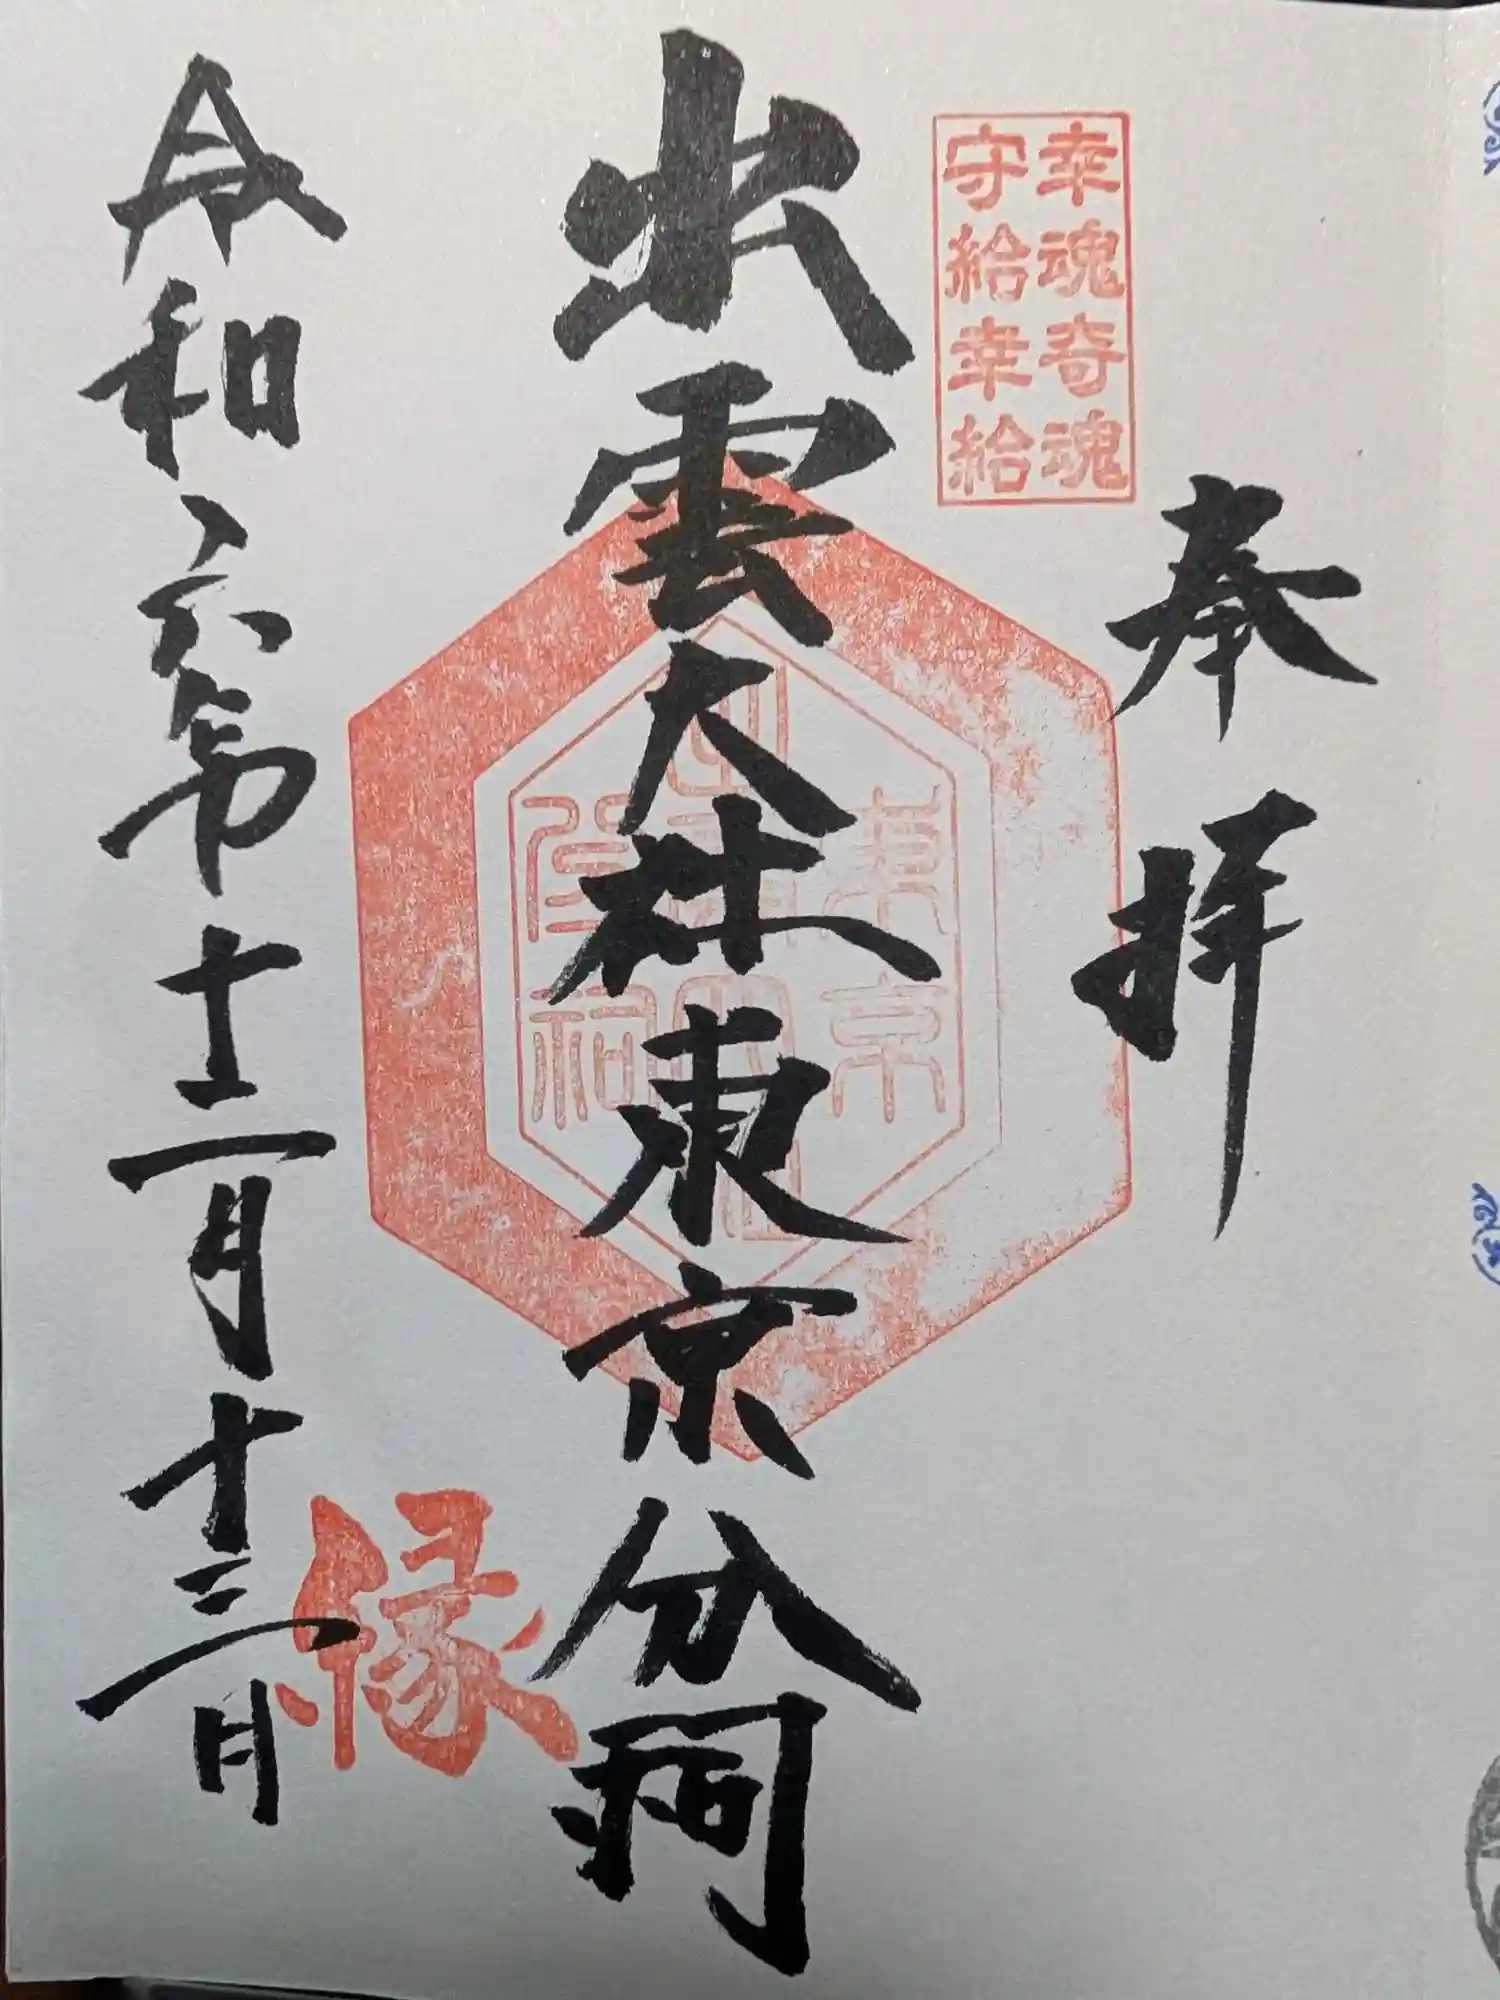 奉拝
幸魂奇魂
守給幸給
出雲大社東京分祠
東京
縁
令和六年十二月十三日